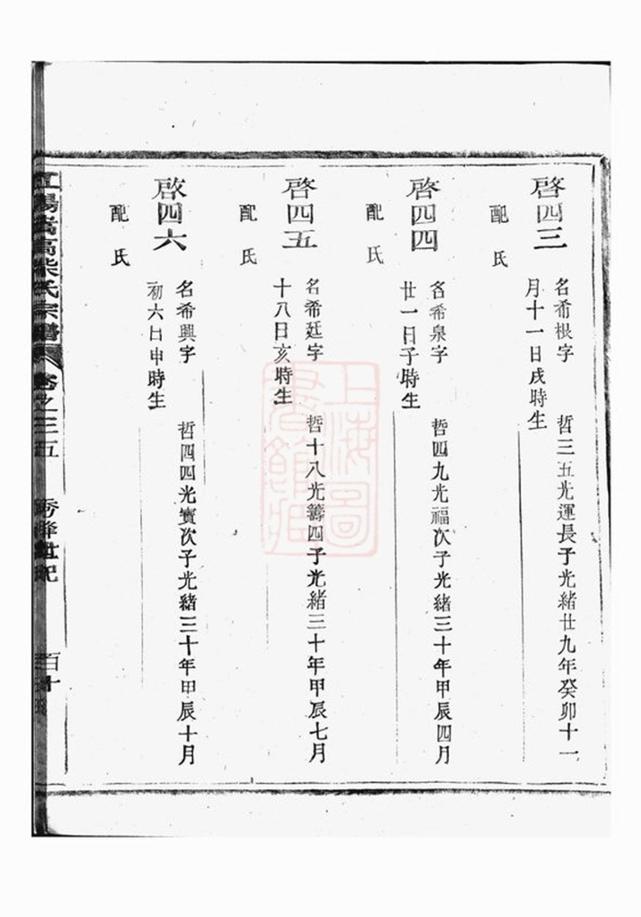 啓四三
名希根字 哲三五光運長子光緒廿九年癸卯十一
月十一日戌時生
配氏
啓四四
名希泉字 哲四九光福次子光緒三十年甲辰四月
廿一日子時生
配氏
啓四五
名希廷字 哲十八光籌四子光緒三十年甲辰七月
十八日亥時生
配氏
啓四六
名希興字 哲四四光實次子光緒三十年甲辰十月
初六日申時生
配氏
高柴氏宗譜 卷之三五 百十
上海圖書館藏